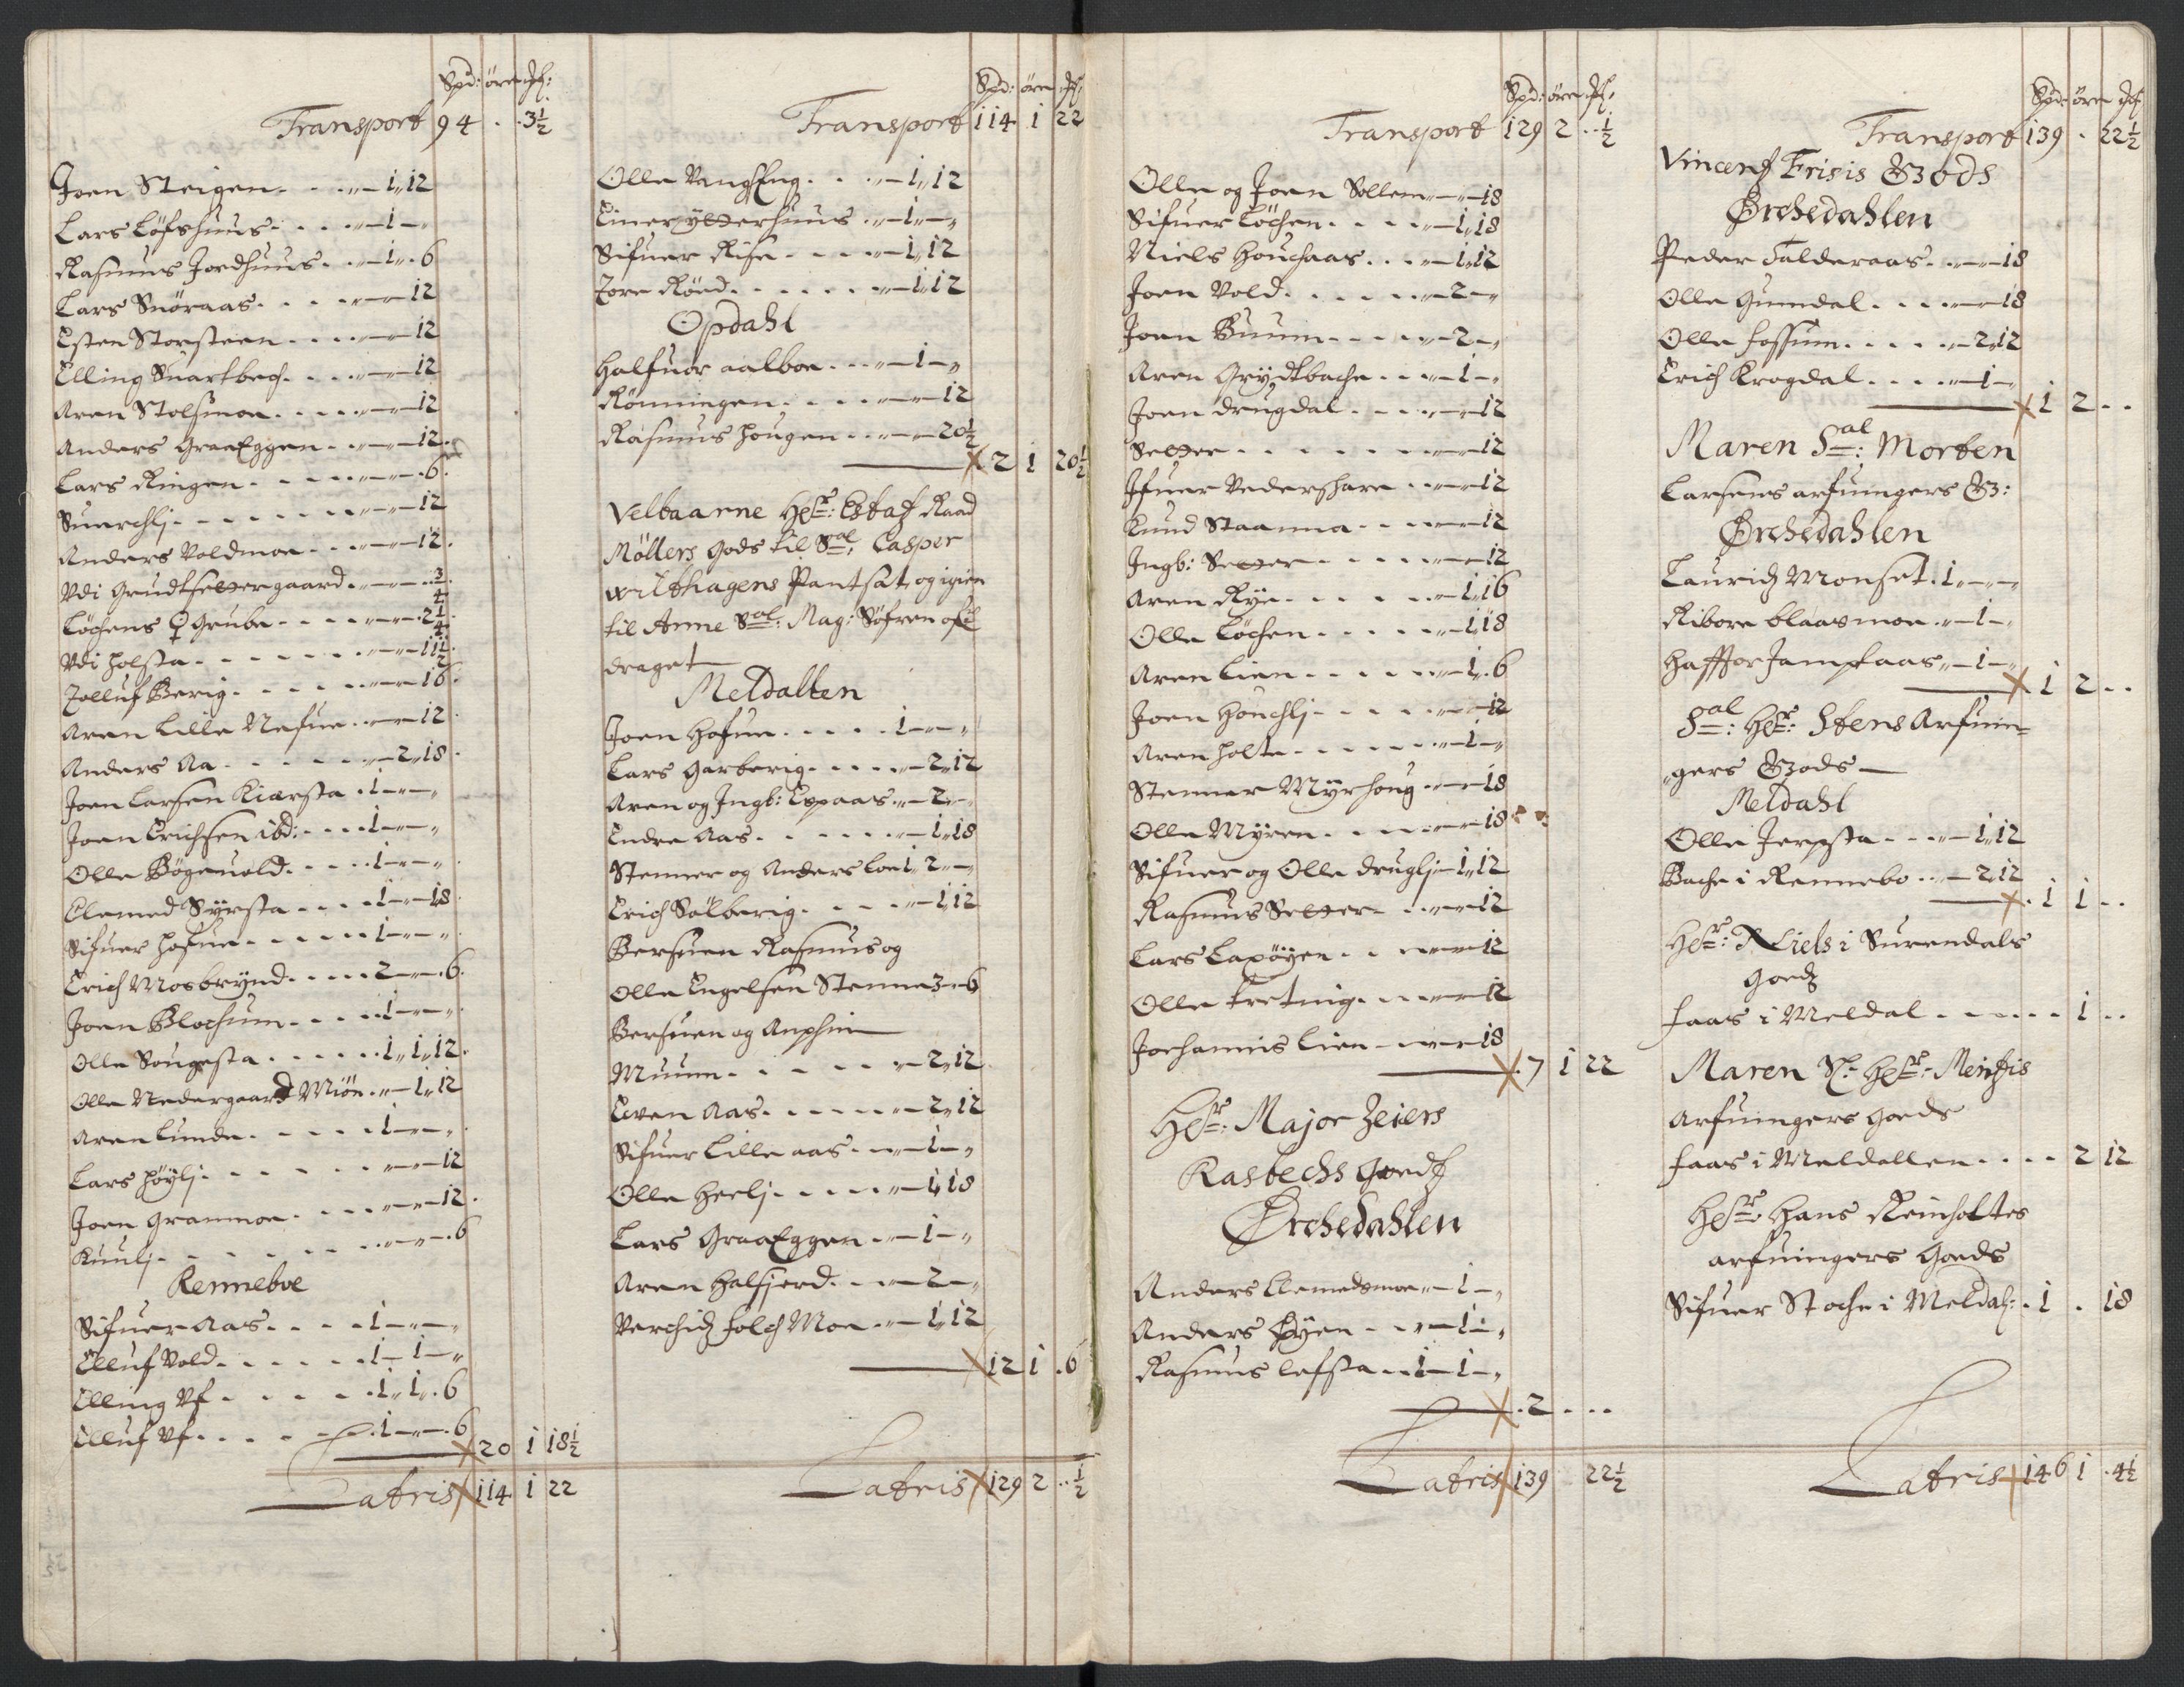 Spd: øre
Transport 94 . . 3½
Joen Steigen - - - „ — 1 „ 12
Lars Löfshuus - - - „ — 1 — „
Rasmus Jordhuus - - „ — 1 „ . 6
Lars Snöraas - - - - „ — „ — 12
Esten Storsteen - - - - „ — „ — 12
Elling Suartbech - - - „ — „ — 12
Aren Stolsmoe - - - - „ — „ — 12
Anders GraaEggen - - „ — „ — 12
Lars Ringen - - - - - „ — „ — . 6
Suerchlj - - - - - - - „ — „ — 12
Anders Voldmoe - - - „ — „ — 12
Vdi Grudtsettergaard - „ — „ — . ¾
Löchens ♀ Grube - - - - „ — „ — . 2¼
Vdi Holsta - - - - - - „ — „ — 11½
Tolluf Berig - - - - - „ — „ — 16
Aren Lille Nefue - - „ — „ — 12
Anders Aa - - - - - - „ — 2 „ 18
Joen Larsen Kiærsta . 1 — „ — „
Joen Erichsen ibd: - - - 1 — „ — „
Olle Bögeuold - - - - 1 — „ — „
Clemed Syrsta - - - - 1 — „ — 18
Sifuer Hofue - - - - - 1 — „ — „
Erich Mosbrynd - - - - 2 — „ — . 6
Joen Blochum - - - - 1 — „ — „
Olle Sougesta - - - - - 1 „ 1 „ 12
Olle Nedergaard Miön - „ — 1 „ 12
Aren Lunde - - - - - 1 — „ — „
Lars Höylj - - - - - - „ — „ — 12
Joen Granmoe - - - - „ — „ — 12
Kuulj - - - - - - - - „ — „ — . 6
Renneboe
Sifuer Aas - - - - 1 — „ — „
Elluf Vold - - - - - . 1 — 1 — „
Elling Vf - - - - - . 1 „ 1 „ . 6
Elluf Vf - - - - - . 1 — „ — . 6
20 1 18½
Latris 114 1 22
Spd: øre
Transport 114 1 22
Olle VangsEng - - - „ — 1 „ 12
Einer ytterhuus - „ — 1 „ — „
Sifuer Rise - - - - „ — 1 „ 12
Tore Röed - - - - - - „ — 1 „ 12
Opdahl
Halfuor aalboe - - - „ — 1 — „
Rönningen - - - - „ — „ — 12
Rasmus Hougen - - „ — „ — 20½
2 1 20½
Velbaarne Hr: Etatz Raad
Möllers Gods til Sal: Casper
wilthagens Pantsat og igien
til Anne Sal: Mag: Söfren ofr
draget
Meldallen
Joen Hofue - - - - - 1 — „ — „
Lars Garberig - - - - „ — 2 „ 12
Aren og Ingb: Espaas - „ — 2 — „
Endre Aas - - - - - - „ — 1 „ 18
Stenner og Anders Loe 1 „ 2 — „
Erich Sölberig - - - - „ — 1 „ 12
Bersuen Rasmus og
Olle Engelsen Stenne 3 — „ 6
Bersuen og Anphin
Muum - - - - - - „ — 2 „ 12
Even Aas - - - - - „ — 2 „ 12
Sifuer Lille aas - - „ — 1 — „
Olle Heelj - - - - - „ — 1 „ 18
Lars GraaEggen - „ — 1 — „
Aren Halfierd - - „ — 2 — „
Verchidz folch Moe - „ — 1 „ 12
12 1 . 6
Latris 129 2 . . ½
Spd: øre
Transport 129 2 . . ½
Olle og Joen Sollem „ — „ — 18
Sifuer Löchen - - - - „ — 1 „ 18
Niels Houchaas - - - „ — 1 „ 12
Joen Vold - - - - - - „ — 2 — „
Joen Buum - - - - - „ — 2 — „
Aren Grydtbache - - „ — 1 — „
Joen Drugdal - - - „ — „ — 12
Setter - - - - - - - „ — „ — 12
Ifuer Vedershare - - „ — „ — 12
Lund Staanna - - - „ — „ — 12
Ingb: Setter - - - - „ — „ — 12
Aren Rye - - - - - - „ — 1 „ 16
Olle Löchen - - - - - „ — 1 „ 18
Aren Lien - - - - - - „ — 1 „ . 6
Joen Houchlj - - - - - „ — „ — 12
Aren Holte - - - - - - „ — 1 — „
Stenner Myrhoug - „ — „ — 18
Olle Myren - - - - „ — „ — 18
Sifuer og Olle Druglj „ — 1 „ 12
Rasmus Setter - - „ — „ — 12
Lars Laxöyen - - „ — „ — 12
Olle Fretnig - - - „ — „ — 12
Joehannis Lien - „ — „ — 18
7 1 22
Hr: Major Zeiers
Rasbechs Goedz
Ørchedahlen
Anders Clemedsmoe „ — 1 — „
Anders Øyen - - „ — 1 — „
Rasmus Lefsta - - 1 — 1 — „
. 2 . . . .
Latris 139 22½
Spd: øre
Transport 139 . 22½
Vincentz Frisis Gods
Ørchedahlen
Peder Falderaas - „ — „ — 18
Olle Gumdal - - - - „ — „ — 18
Olle Fossum - - - - - „ — 2 „ 12
Erich Krogdal - - - - „ — 1 — „
1 2 . .
Maren Sal: Morten
Larsens arfuingers G:
Ørchedahlen
Lauridz Monset . 1 „ — „ — „
Ribore blaasmoe - „ — 1 — „
Haffor Jampsaas „ — 1 — „
1 2 . .
Sal: Hr: Stens Arfuin=
gers Gods —
Meldahl
Olle Jerpsta - - - „ — 1 „ 12
Bache i Rennebo - - „ — 2 „ 12
. 1 1 . .
Hr: Niels i Surendals
Goedz
Faas i Meldal - - - - - - . 1 . .
Maren Sl: Hr: Mentzis
Arfuingers Goeds
Faas i Meldallen - - - - 2 12
Hr: Hans Reinholtes
arfuingers Goeds
Sifuer Stoche i Meldal: . 1 . 18
Latris 146 1 . 4½